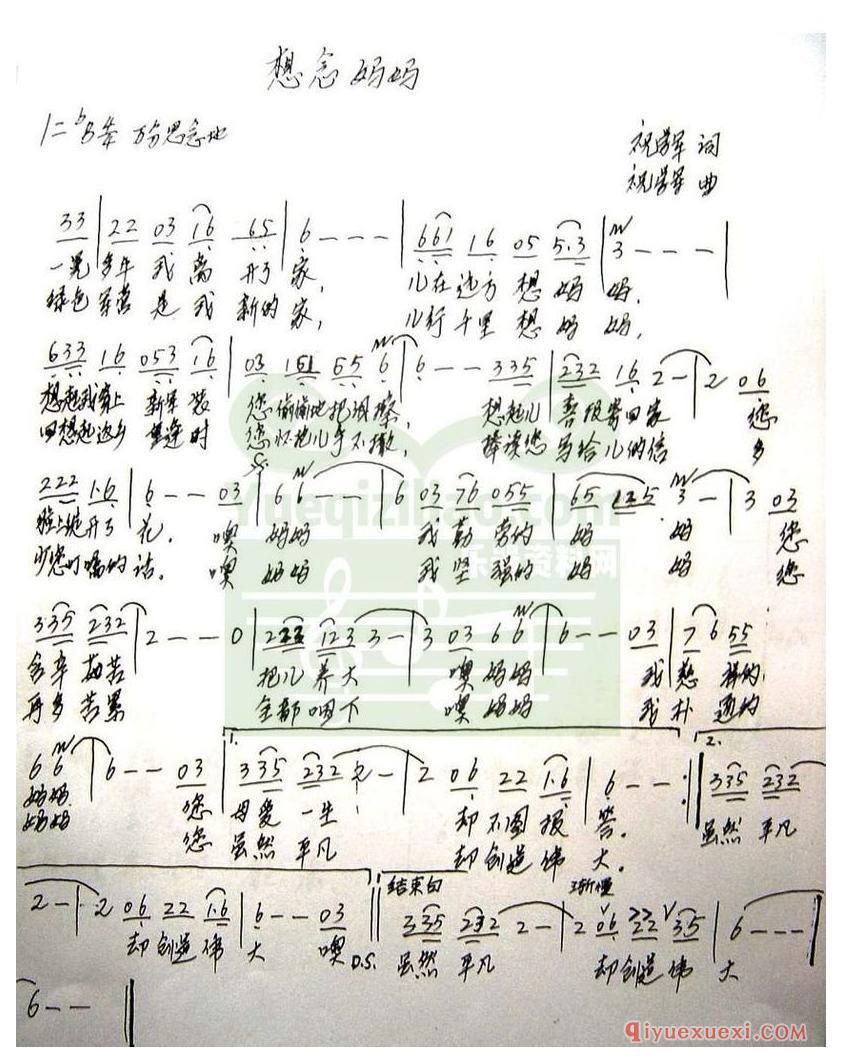 想念妈妈
1=♭B 4/4 万分思念地
祝学军 词
祝学军 曲
33 | 22 03 16 65 | 6 - - - | 661 16 05 5·3 | 3 - - - |
一晃 多年 我 离 开了 家, 儿在边方 想 妈 妈,
绿色 军营 是 我 新的 家, 儿行千里 想 妈 妈,
633 16 053 16 | 03 161 65 6 | 6 - - 335 | 232 16 2 - | 2 06
想起我穿上 新军 装 您 偷偷地把泪擦, 想起儿 喜报寄回家 您
回想起 重逢时 您 怀抱儿手不撒, 捧读您 写给儿的信 多
222 1·6 | 6 - - 03 | 6 6 - - | 6 03 76 055 | 65 125 3 - | 3 03
脸上绽开了 花. 噢 妈妈 我 勤 劳的 妈 妈 您
少您叮嘱的话. 噢 妈妈 我 坚 强的 妈 妈 您
335 232 | 2 - - 0 | 223 123 3 - | 3 03 6 6 | 6 - - 03 | 7 6 55
含辛 茹苦 把儿 养大 噢 妈妈 我 慈 祥的
再多 苦累 全部 咽下 噢 妈妈 我 朴 素的
6 6 | 6 - - 03 | 1. 335 232 2 - | 2 06 22 1·6 | 6 - - :‖ 2. 335 232
妈妈 您 母爱 一生 却 不图 报 答. 虽然 平凡
妈妈 您 虽然 平凡 却 创造 伟 大.
2 - | 2 06 22 1·6 | 6 - - 03 ‖ 结束句 335 232 2 - | 2 06 22 35 | 6 - - - | 渐慢
却 创造 伟 大 噢 D.S. 虽然 平凡 却创造 伟 大
6 - - ‖
Yueqiziliao.com
乐器资料网
Qiyuexuexi.com